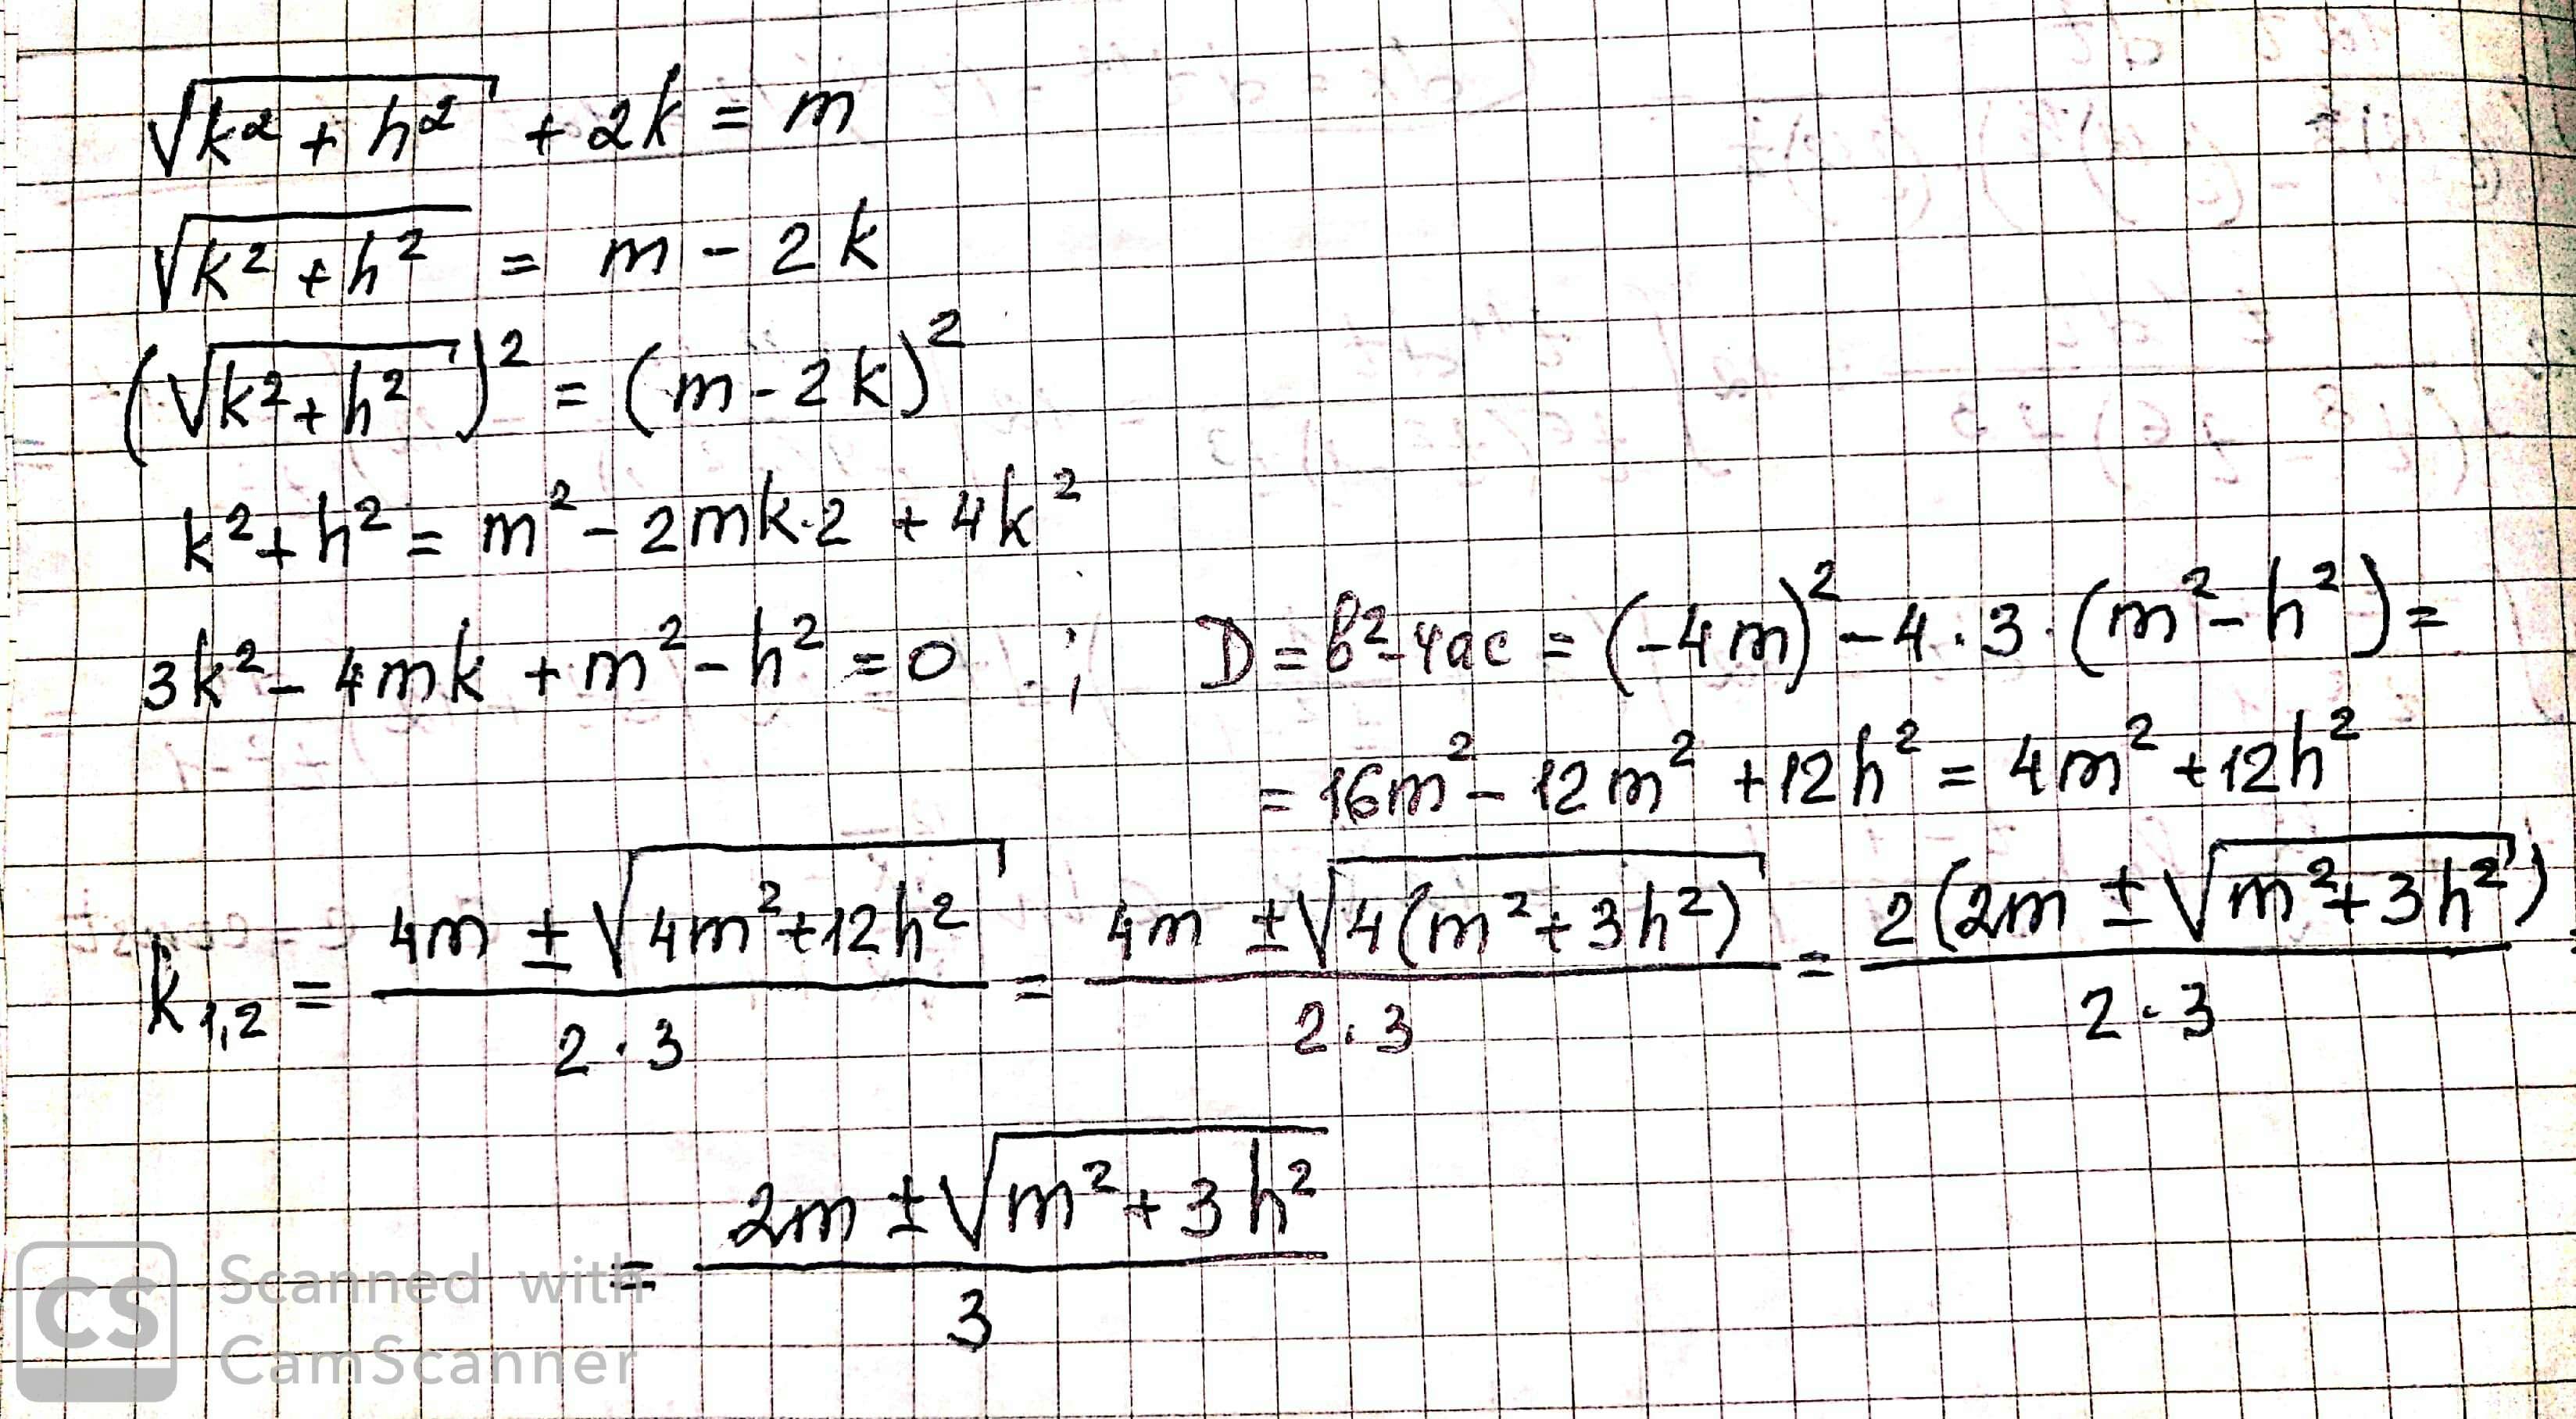 √(k² + h²) + 2k = m
√(k² + h²) = m - 2k
(√(k² + h²))² = (m - 2k)²
k² + h² = m² - 2mk·2 + 4k²
3k² - 4mk + m² - h² = 0 ; D = b² - 4ac = (-4m)² - 4·3·(m² - h²) =
= 16m² - 12m² + 12h² = 4m² + 12h²
k₁,₂ = (4m ± √(4m² + 12h²))/(2·3) = (4m ± √(4(m² + 3h²)))/(2·3) = (2(2m ± √(m² + 3h²)))/(2·3) =
= (2m ± √(m² + 3h²))/3
CS Scanned with
CamScanner